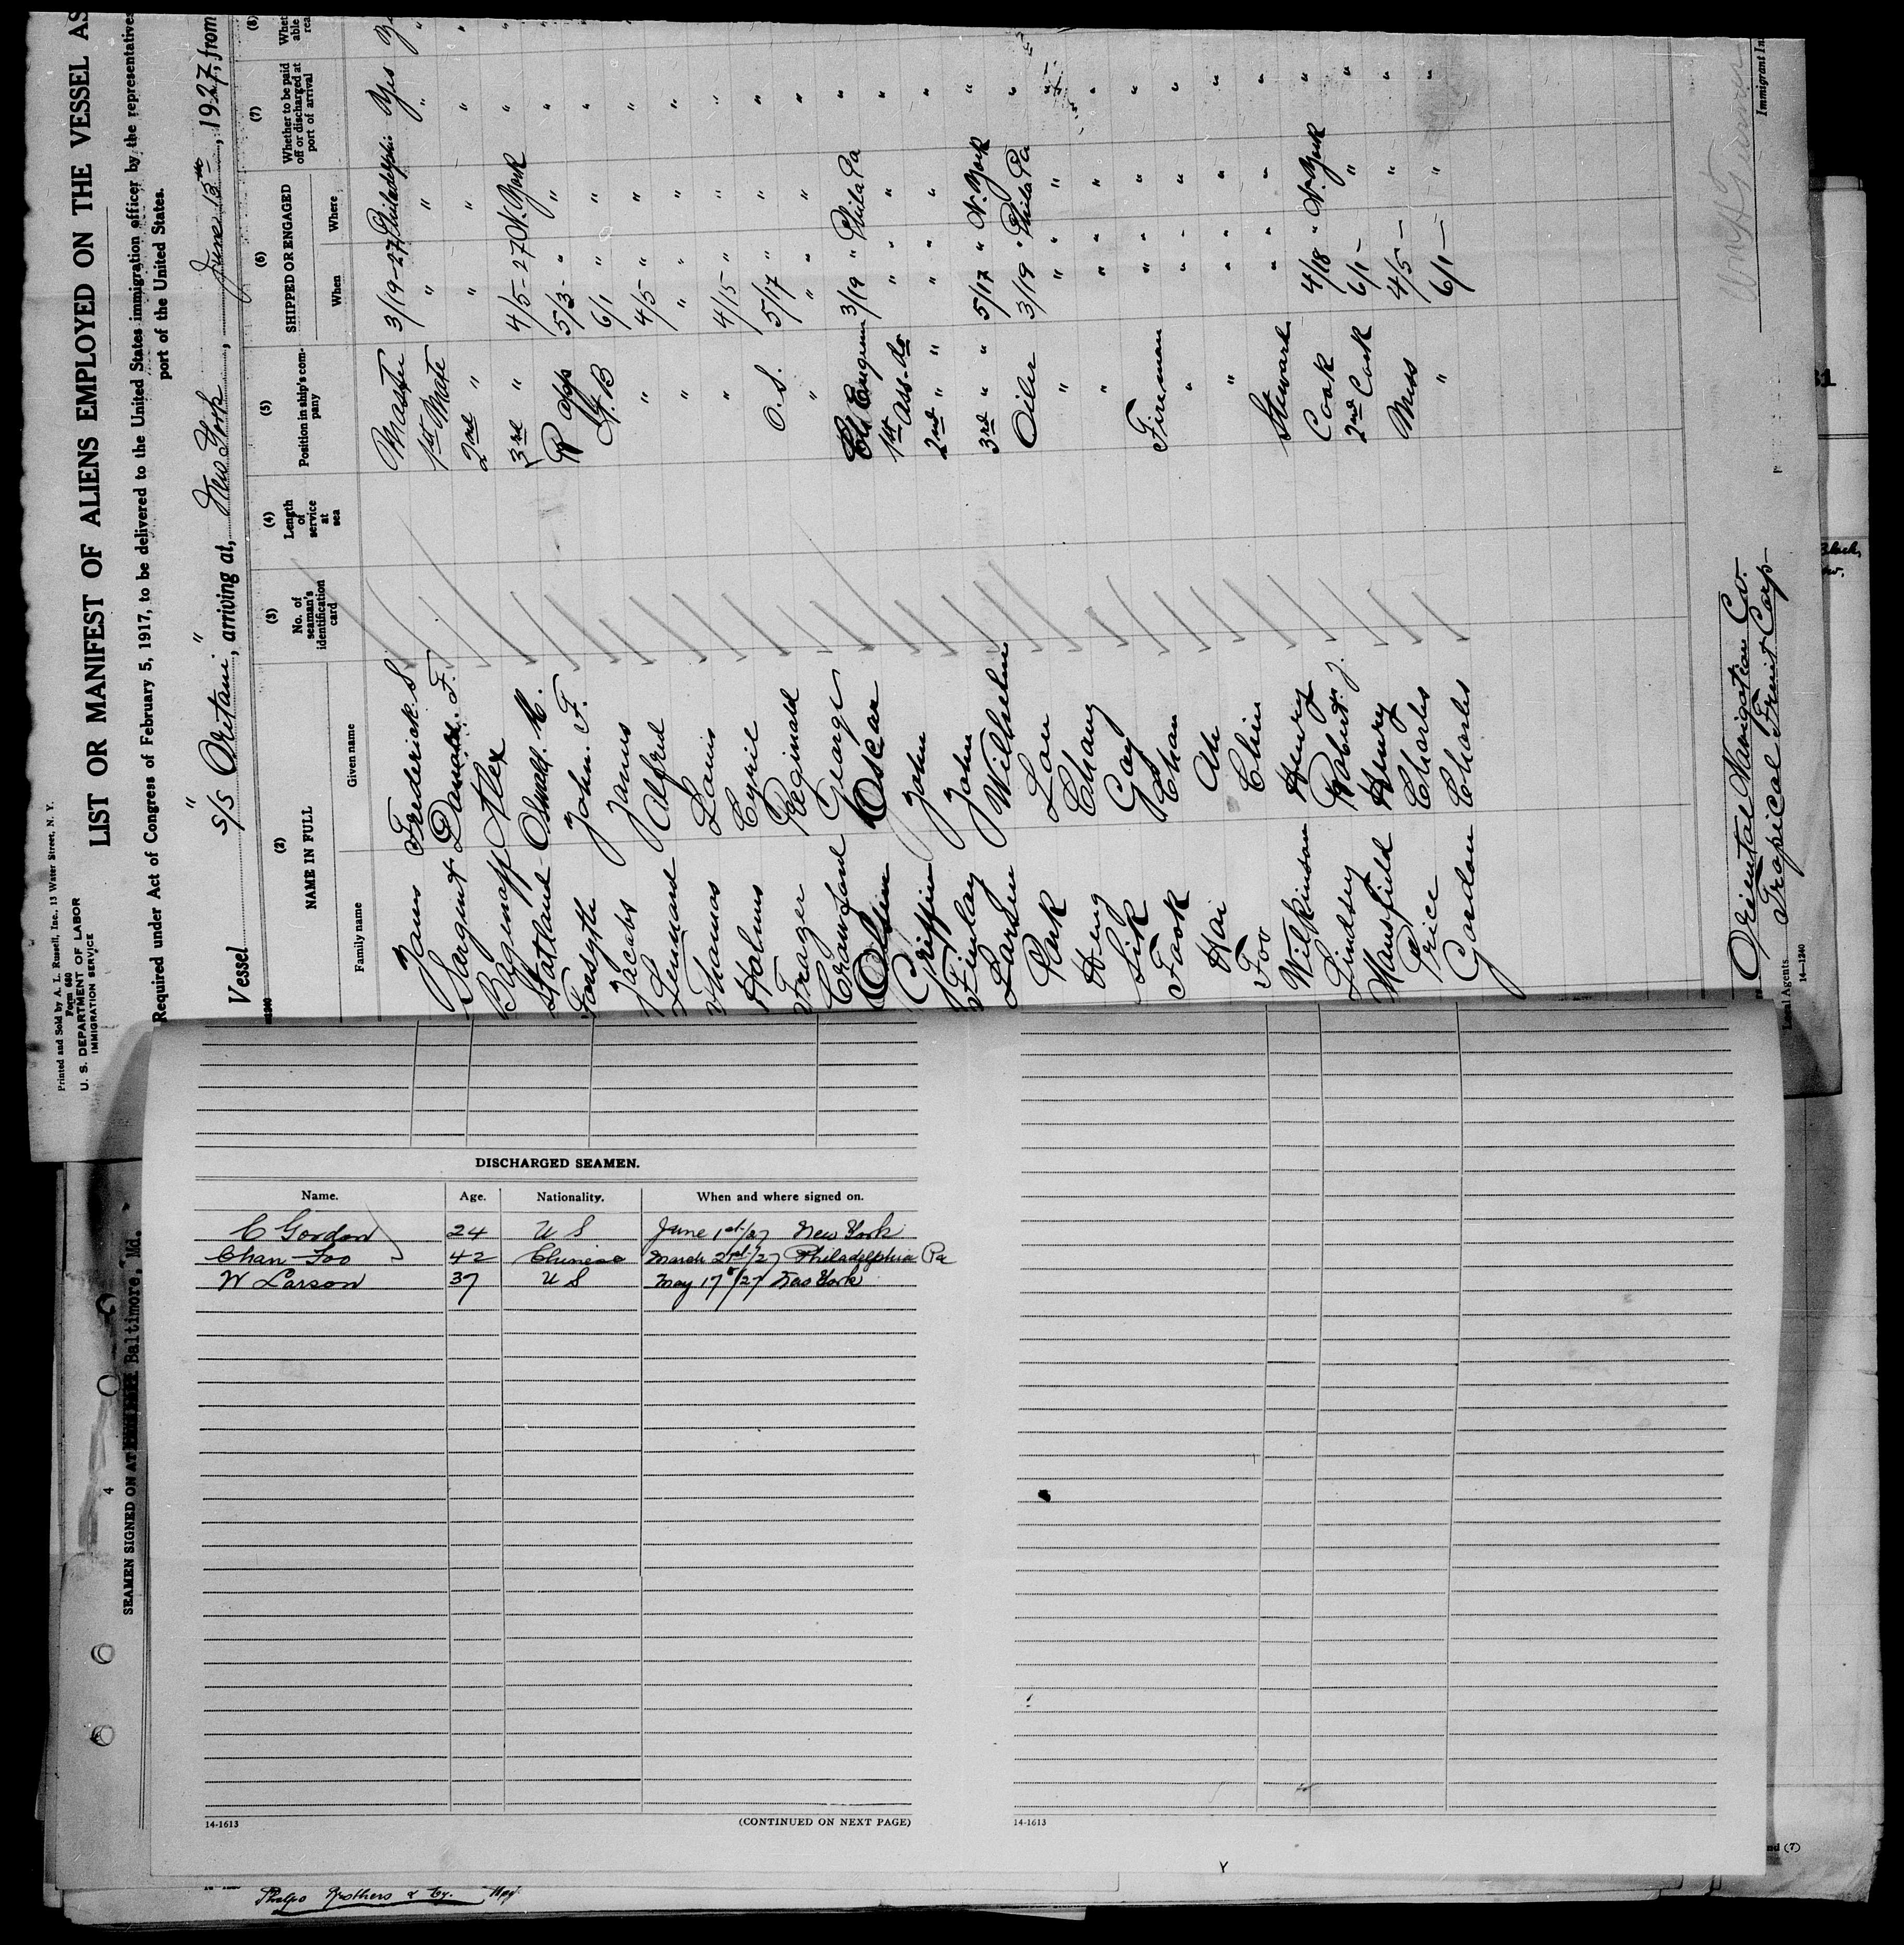 Printed and Sold by A. L. Russell, Inc., 13 Water Street, N. Y.
Form 680
U. S. DEPARTMENT OF LABOR
IMMIGRATION SERVICE
LIST OR MANIFEST OF ALIENS EMPLOYED ON THE VESSEL AS
Required under Act of Congress of February 5, 1917, to be delivered to the United States immigration officer by the representatives
port of the United States.
Vessel "S/S Oritani", arriving at, New York, June 15th, 1927, from
(2) (3) (4) (5) (6) (7) (8)
NAME IN FULL No. of seaman's identification card Length of service at sea Position in ship's company SHIPPED OR ENGAGED Whether to be paid off or discharged at port of arrival
Family name Given name When Where
Frederick S Master 3/19-27 Philadelphi Yes
Sargent Donald. F. 1st Mate " " "
Alex 2nd " " " "
Oswald. 3rd " 4/5-27 N. York "
Forsyth John. F. R Opp 5/3 " " "
Jacobs James A. B 6/1 " " "
Alfred " 4/5 " " "
Thomas Louis " " " " "
Holmes Cyril " 4/15 " " "
Frazer Reginald O. S. 5/17 " " "
Crawford George " " " " "
Olsen Oscar Ch Engineer 3/19 " Phila Pa "
Griffin John 1st Ass. do " " " "
Finlay John 2nd " " " " "
Larsen Wilhelm 3rd " " 5/17 " N. York "
Park Lon Oiler 3/19 " Phila Pa "
Heng Chang " " " " "
Sik Gay " " " " "
Fook Chan Fireman " " " "
Hai Ah " " " " "
Foo Chin " " " " "
Wilkinson Henry Steward " " " "
Lindsey Robert J. Cook 4/18 " N. York "
Mansfield Henry 2nd Cook 6/1 - " "
Price Charles Mess 4/5 - " "
Gordon Charles " 6/1 - " "
Oriental Navigation Co.
Tropical Fruit Corp
Local Agents.
14-1240
Immigrant In
DISCHARGED SEAMEN.
Name. Age. Nationality. When and where signed on.
C Gordon 24 U S June 1st/27 New York
Chan Foo 42 Chinese March /27 Philadelphia Pa
W Larson 37 U S May 17/27 New York
14-1613 (CONTINUED ON NEXT PAGE) 14-1613
Y
4
SEAMEN SIGNED ON AT Baltimore, Md.
Phelps Brothers & Cy.
nd (7)